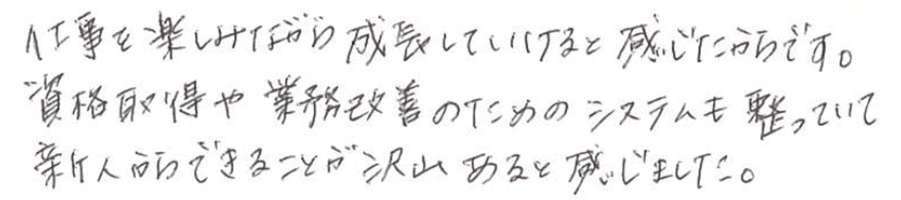 仕事を楽しみながら成長していけると感じたからです。
資格取得や業務改善のためのシステムも整っていて
新人からできることが沢山あると感じました。